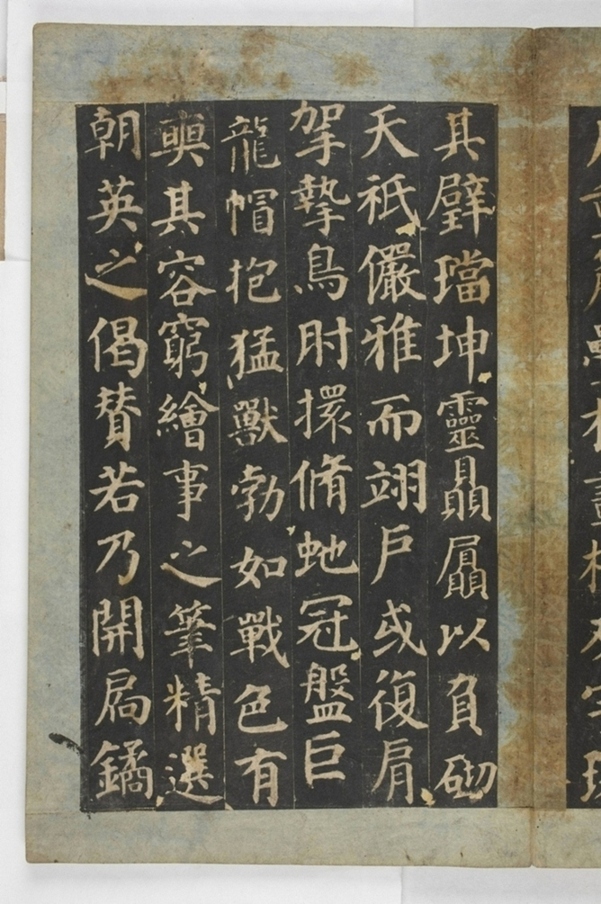 其璧璫坤靈贔屭以負砌
天祇儼雅而翊戶或復肩
拏摯鳥肘擐脩虵冠盤巨
龍帽抱猛獸勃如戰色有
奭其容窮繪事之筆精選
朝英之偈贊若乃開扃鐍